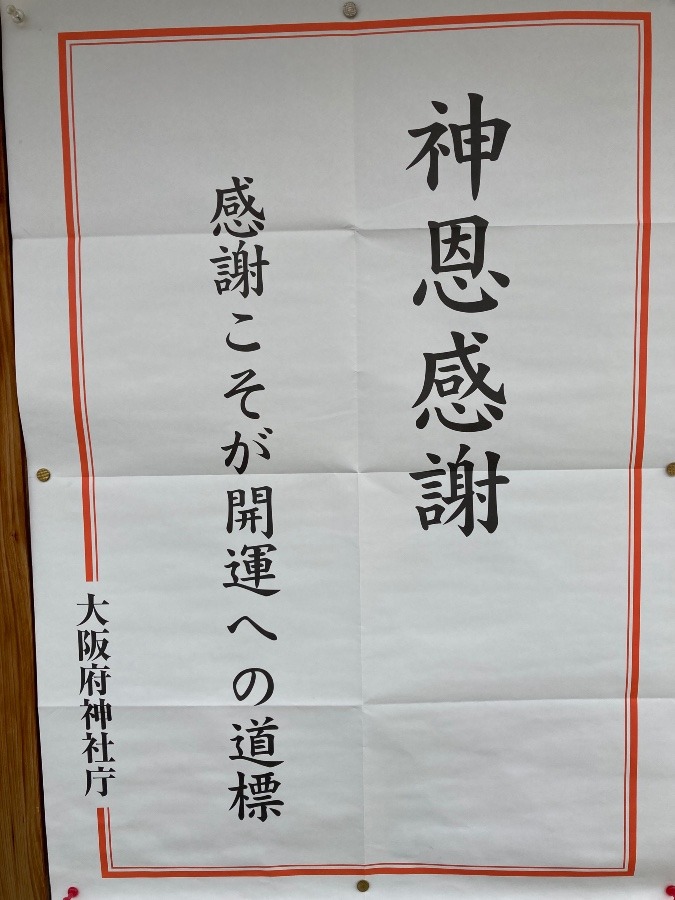 神恩感謝
感謝こそが開運への道標
大阪府神社庁